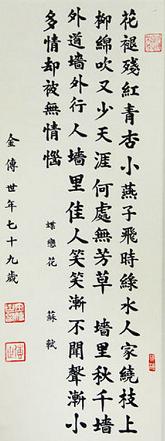 花褪殘紅青杏小燕子飛時綠水人家繞枝上
柳綿吹又少天涯何處無芳草 墙里秋千墙
外道墙外行人墙里佳人笑笑漸不聞聲漸小
多情却被無情惱
蝶戀花 蘇軾
金傳世年七十九歲